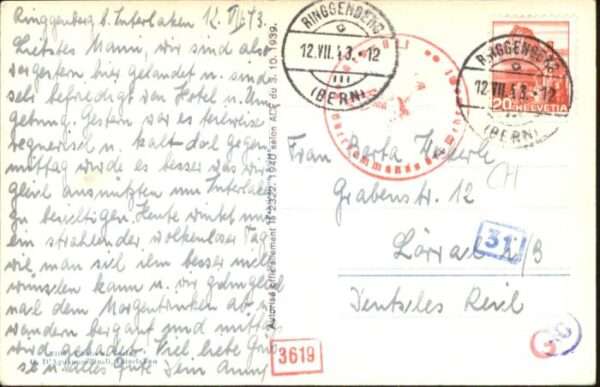 Ringgenberg b. Interlaken 12. VII. 43.
Liebstes Mann, wir sind also
vorgestern hier gelandet u. sind
sehr befriedigt von Hotel u. Um
gebung. Gestern war es teilweise
regnerisch u. kalt doch gegen
mittag wurde es besser was wir
gleich ausnützten um Interlaken
zu besichtigen. Heute winkt uns
ein strahlender wolkenloser Tag
wie man sich ihn besser nicht
wünschen kann u. wir
nach dem Morgentrinken ab
wandern bergauf und mittags
wird gebadet. Viel liebe Grüs
se u. alles Gute Dein Anny
Autorisé officiellement le 2322. 1940 selon ACF du 3. 10. 1939.
RINGGENBERG
12.VII.43.-12
(BERN)
Oberkommando der Wehrmacht
RINGGENBERG
12.VII.43.-12
(BERN)
20 HELVETIA
Frau Berta
CH
Grabenstr. 12
Lörrach i/B
31
Deutsches Reich
3619